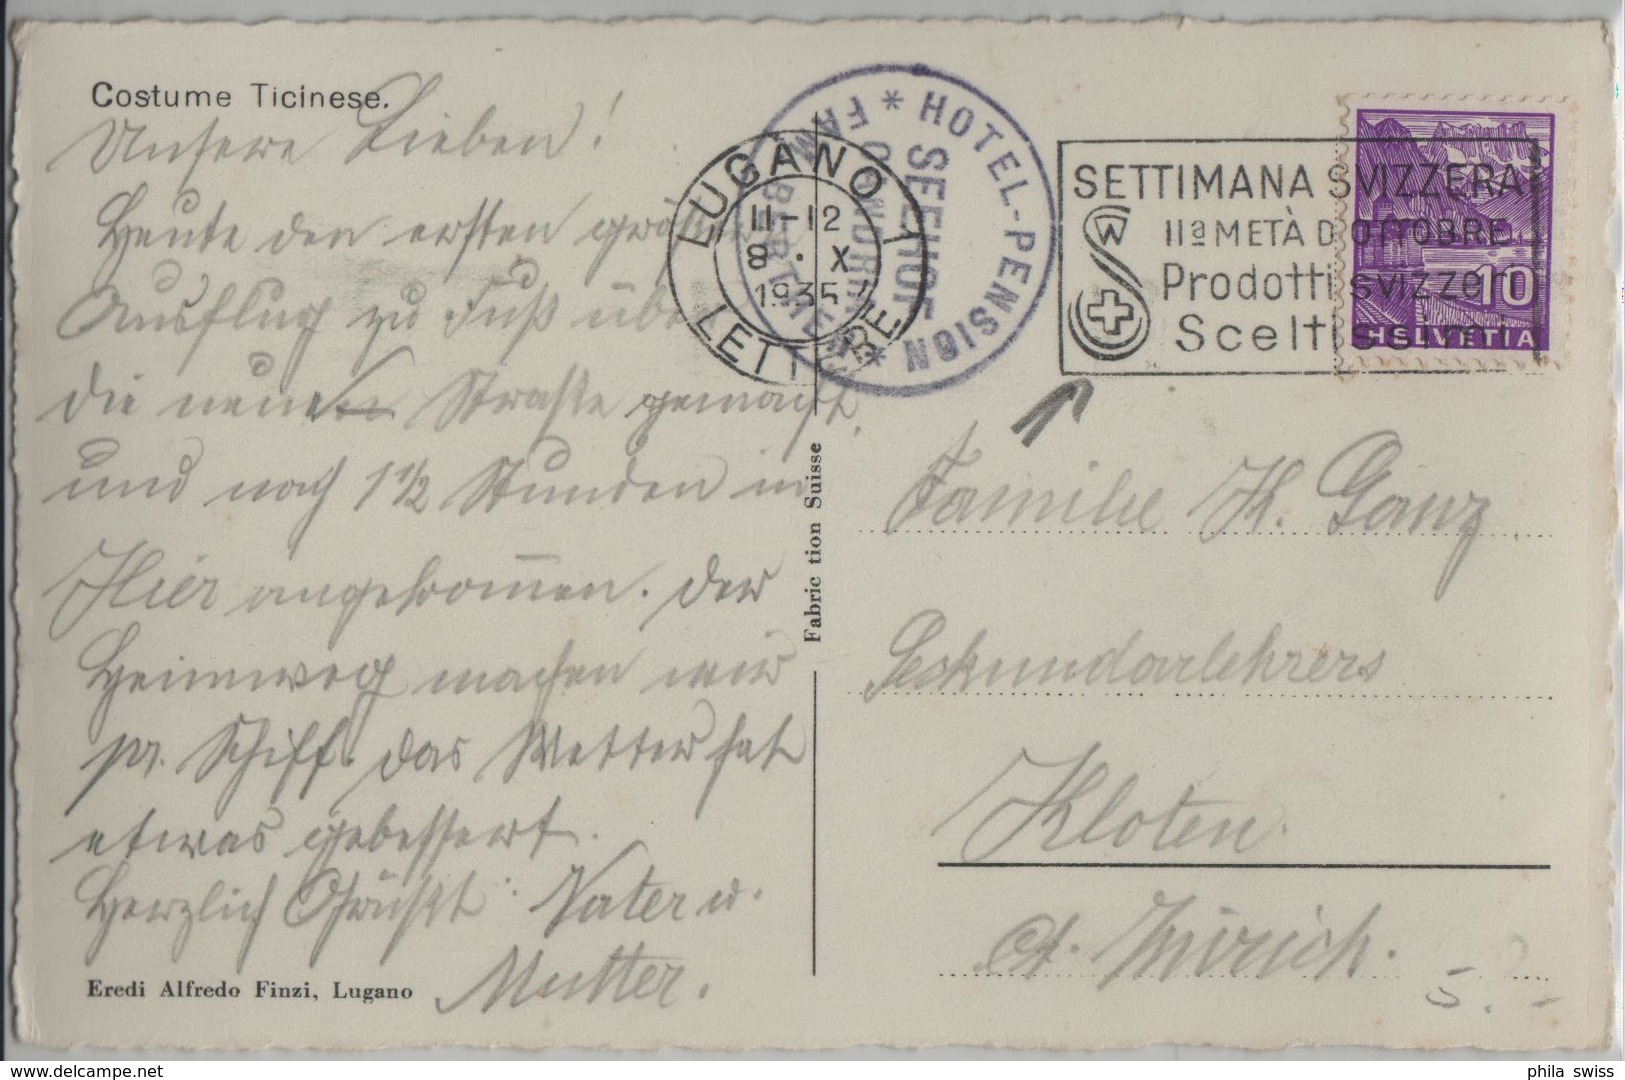 Costume Ticinese.
Unsere Lieben!
Heute den ersten großen
Ausflug zu Fuß über
die neue Straße gemacht,
und nach 1 1/2 Stunden in
Hier angekom̄en. Der
Heimweg machen wir
pr. Schiff. Das Wetter hat
etwas gebessert.
Herzlich Grüßt: Vater u.
Mutter.
Eredi Alfredo Finzi, Lugano
Fabric tion Suisse
LUGANO 1
11-12
8 · X
1935
LETTERE
* HOTEL-PENSION *
SEEHOF
GANDRIA
FAM.
SETTIMANA SVIZZERA
IIa METÀ D'OTTOBRE
Prodotti svizzeri
Sceltissimi
10
HELVETIA
Familie K. Ganz
Sekundarlehrers
Kloten.
Ct. Zürich.
5.-
delcampe.net
phila swiss